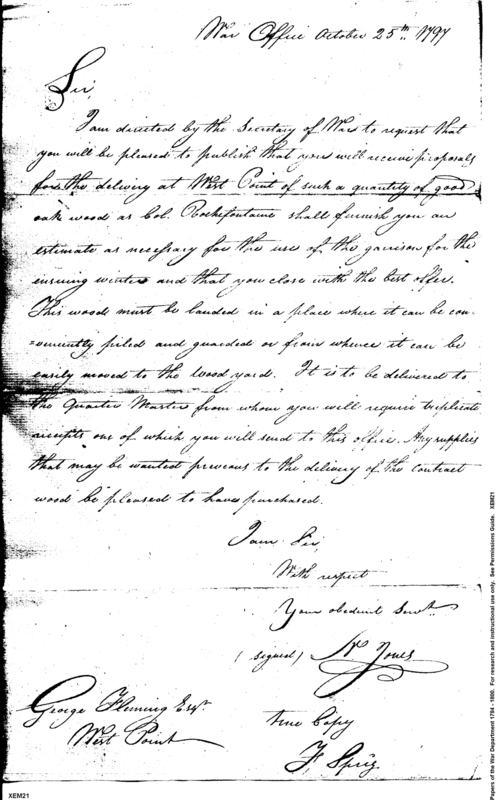 War Office October 25th 1797
Sir,
I am directed by the Secretary of War to request that
you will be pleased to publish that you will receive proposals
for the delivery at West Point of such a quantity of good
oak wood as Col. Rochefontaine shall furnish you an
estimate as necessary for the use of the garrison for the
ensuing winter and that you close with the best offer.
This wood must be landed in a place where it can be con-
=veniently piled and guarded or from whence it can be
easily moved to the wood yard. It is to be delivered to
the Quarter Master from whom you will require triplicate
receipts one of which you will send to this office. Any supplies
that may be wanted previous to the delivery of the contract
wood be pleased to have purchased.
I am Sir,
With respect
Your obedient Servt.
(signed) Wm Jones
George Fleming Esqr.
West Point
true Copy
F. Sprig.
XEM21
Papers of the War Department 1784 - 1800. For research and instructional use only. See Permissions Guide. XEM21